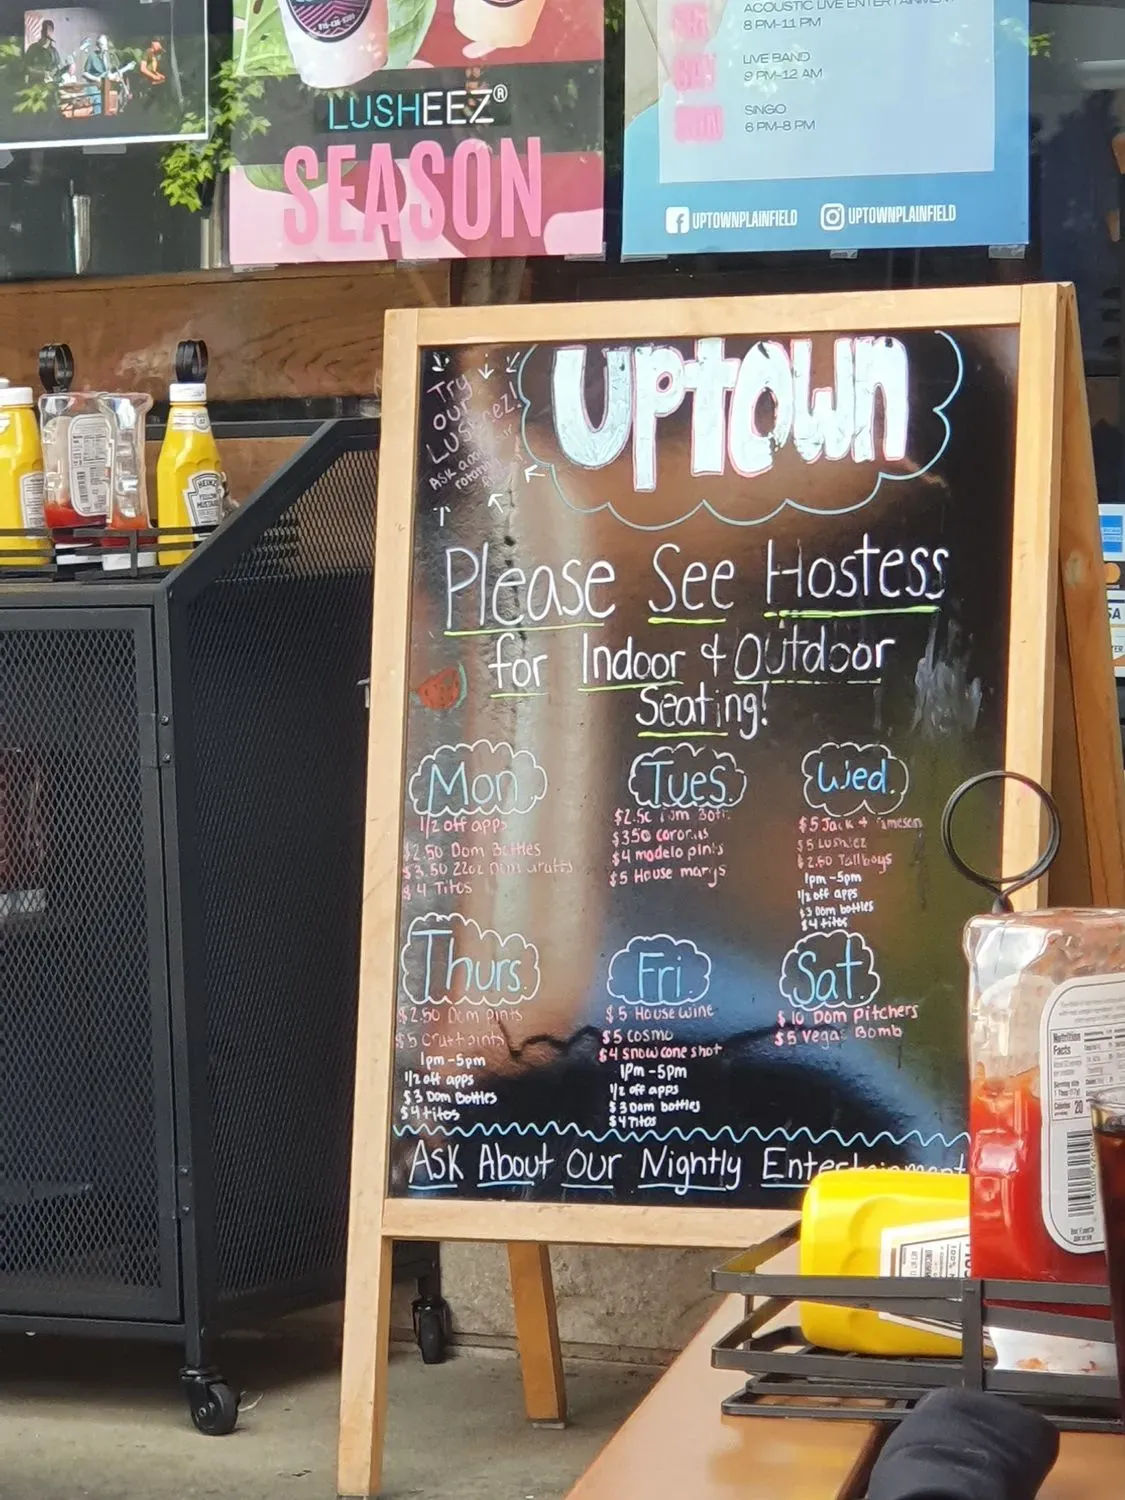 LUSHEEZ®
SEASON
ACOUSTIC LIVE ENTERTAINMENT
8 PM-11 PM
LIVE BAND
9 PM-12 AM
SINGO
6 PM-8 PM
UPTOWNPLAINFIELD
UPTOWNPLAINFIELD
Try
our
UPTOWN
Please See Hostess
for Indoor & Outdoor
Seating!
Mon
1/2 off apps
$2.50 Dom Bottles
$3.50 22oz Dom drafts
$4 Titos
Tues.
$3.50 coronas
$4 modelo pints
$5 House margs
Wed.
$5 Jack + Jameson
$5 Lusheez
$2.50 Tallboys
1pm-5pm
1/2 off apps
$3 Dom bottles
$4 titos
Thurs.
$2.50 Dom pints
$5 Craft pints
1pm-5pm
1/2 off apps
$3 Dom Bottles
$4 titos
Fri.
$5 House wine
$5 cosmo
$4 snow cone shot
1pm-5pm
1/2 off apps
$3 Dom bottles
$4 Titos
Sat.
$10 Dom Pitchers
$5 Vegas Bomb
Ask About Our Nightly Entertainment
HEINZ
YELLOW
MUSTARD
Nutrition
Facts
Calories 20